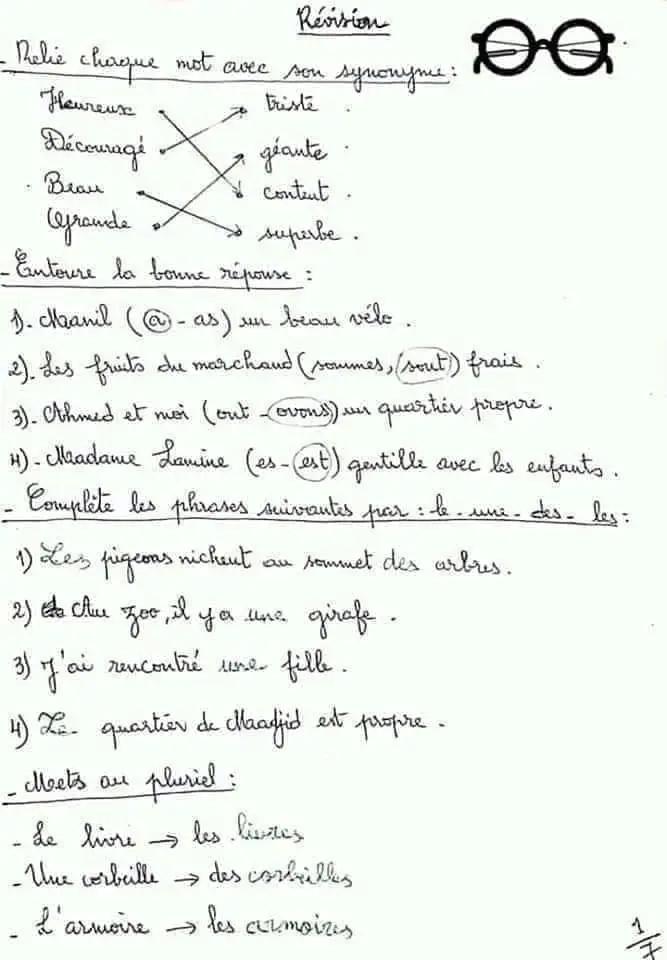 Révision
- Relie chaque mot avec son synonyme :
Heureux triste .
Découragé géante .
. Beau content .
Grande superbe .
- Entoure la bonne réponse :
1). Manil (a - as) un beau vélo .
2). Les fruits du marchand (sommes, (sont)) frais .
3). Ahmed et moi (ont - avons) un quartier propre .
4) - Madame Lamine (es - est) gentille avec les enfants .
- Complète les phrases suivantes par : le - une - des - les :
1) Les pigeons nichent au sommet des arbres .
2) Au zoo, il y a une girafe .
3) J'ai rencontré une fille .
4) Le quartier de Madjid est propre .
- Mets au pluriel :
- Le livre → les livres
- Une corbeille → des corbeilles
- L'armoire → les armoires
1/7